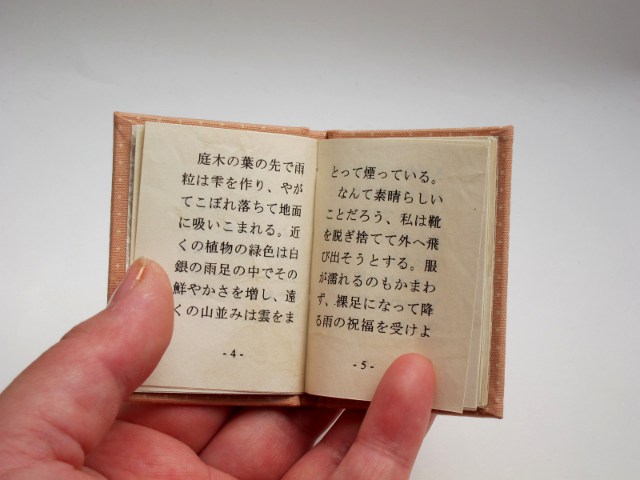 庭木の葉の先で雨
粒は雫を作り、やが
てこぼれ落ちて地面
に吸いこまれる。近
くの植物の緑色は白
銀の雨足の中でその
鮮やかさを増し、遠
くの山並みは雲をま
- 4 -
とって煙っている。
なんて素晴らしい
ことだろう、私は靴
を脱ぎ捨てて外へ飛
び出そうとする。服
が濡れるのもかまわ
ず、裸足になって降
る雨の祝福を受けよ
- 5 -